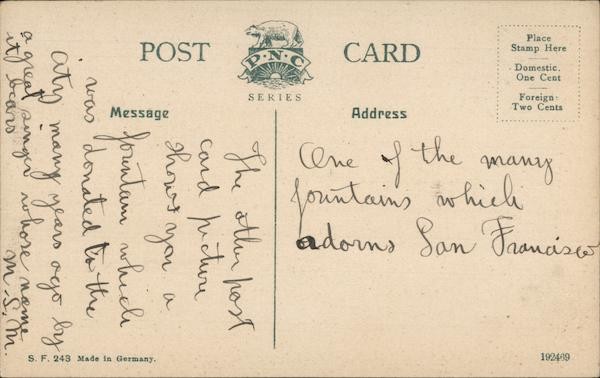 POST CARD
P·N·C
SERIES
Place
Stamp Here
Domestic.
One Cent
Foreign:
Two Cents
Message
Address
The other post
card picture
shows you a
fountain which
was donated to the
city many years ago by
a great singer whose name
it bears
M.S.M.
One of the many
fountains which
adorns San Francisco
S. F. 243 Made in Germany.
192469